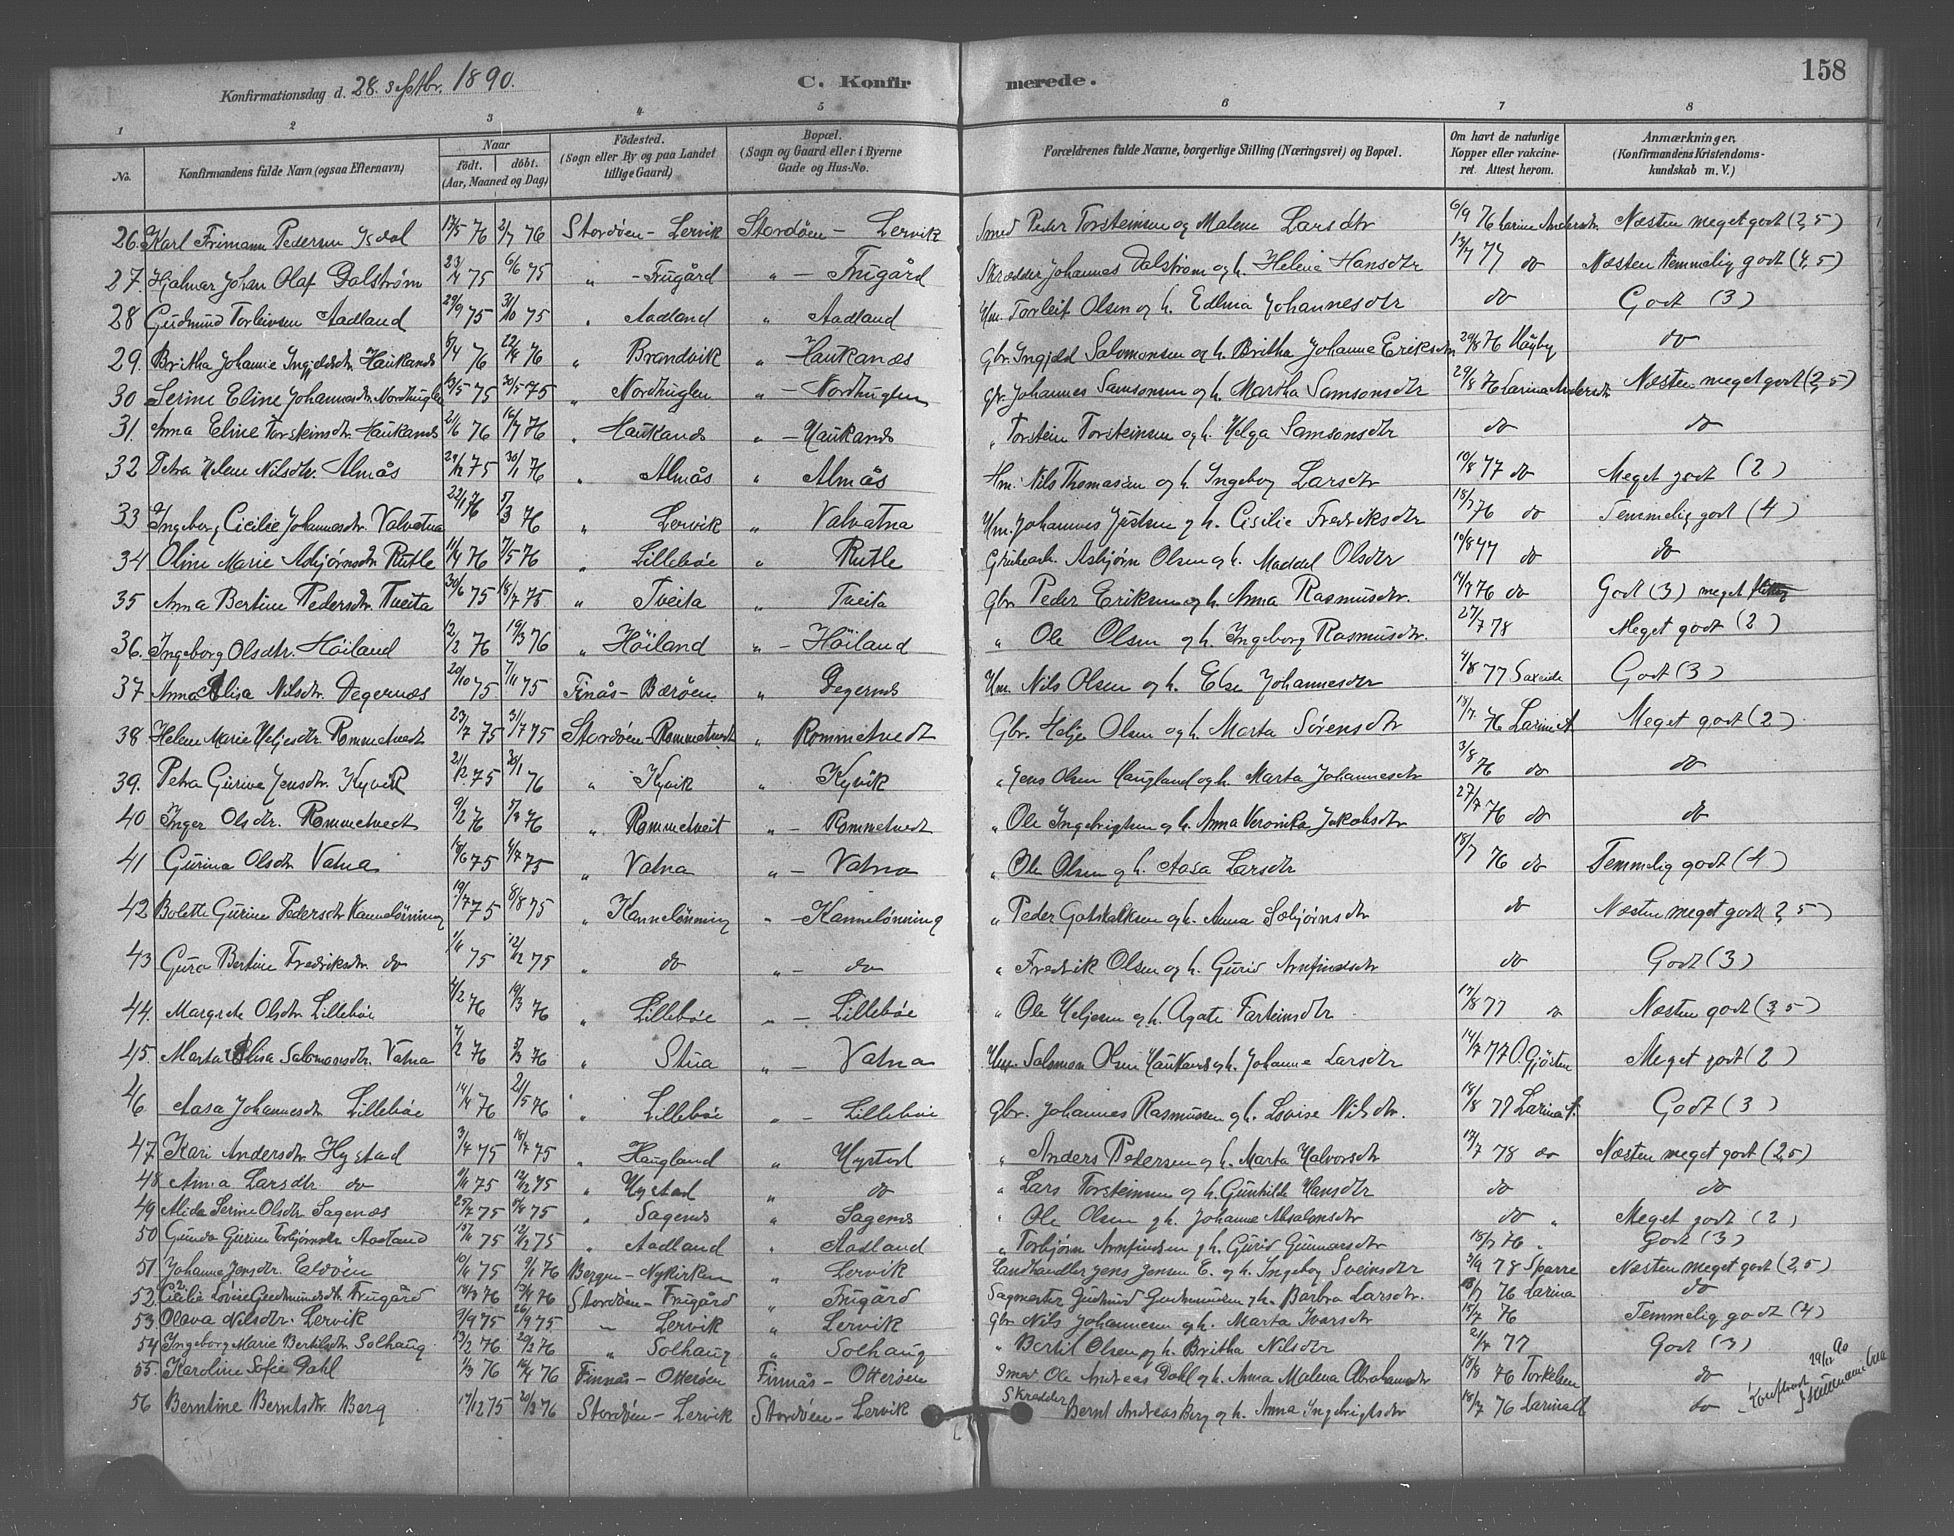 158
Konfirmationsdag d. 28. septbr. 1890. C. Konfirmerede.
1 2 3 4 5 6 7 8
No. Konfirmandens fulde Navn (ogsaa Efternavn) Naar født. døbt. (Aar, Maaned og Dag) Fødested. (Sogn eller By og paa Landet tillige Gaard) Bopæl. (Sogn og Gaard eller i Byerne Gade og Hus-No. Forældrenes fulde Navne, borgerlige Stilling (Næringsvei) og Bopæl. Om havt de naturlige Kopper eller vakcineret. Attest herom. Anmærkninger. (Konfirmandens Kristendomskundskab m. V.)
26. Karl Frimann Pedersen Isdal 17/5 76 2/7 76 Stordøen - Lervik Stordøen - Lervik Smed Peder Torsteinsen og Malene Larsdtr 6/9 76 Larine Andersdtr Næsten meget godt (2,5)
27. Hjalmar Johan Olaf Dalstrøm 23/4 75 6/6 75 " - Frugård " - Frugård Skrædder Johannes Dalstrøm og h. Helene Hansdtr 13/7 77 do Næsten temmelig godt (4,5)
28 Gudmund Torleivsen Aadland 29/9 75 31/10 75 " Aadland " Aadland Hm. Torleif Olsen og h. Edlina Johannesdtr do Godt (3)
29. Britha Johanne Ingjeldsdtr Haukanæs 5/4 76 22/4 76 " Brandvik " Haukanæs Gbr. Ingjeld Salomonsen og h. Britha Johanne Eriksdtr 29/8 76 Høyby do
30 Serine Eline Johannesdtr Nordhuglen 13/5 75 30/5 75 " Nordhuglen " - Nordhuglen Gbr. Johannes Samsonsen og h. Martha Samsonsdtr 29/8 76 Larina Andersdtr Næsten meget godt (2,5)
31. Anna Eline Torsteinsdtr Haukanæs 21/6 76 16/7 76 " Haukanæs " - Haukanæs " Torstein Torsteinsen og h. Helga Samsonsdtr do do
32 Petra Helene Nilsdtr. Almås 29/12 75 30/1 76 " Almås " Almås Hm. Nils Thomassen og h. Ingeborg Larsdtr 10/8 77 do Meget godt (2)
33 Ingeborg Cicilie Johannesdtr. Valvatna 22/1 76 5/3 76 " Lervik " Valvatna Hm. Johannes og h. Cisilie Fredriksdtr 18/7 76 do Temmelig godt (4)
34 Oline Marie Asbjørnsdtr Rutle 11/4 76 7/5 76 " Lillebøe " Rutle Asbjørn Olsen og h. Maddel Olsdtr 10/8 77 do do
35 Anna Bertine Pedersdtr. Tveita 30/6 75 18/7 75 " Tveita " Tveita Gbr Peder Eriksen og h. Anna Rasmusdtr. 14/7 76 do Godt (3) meget
36. Ingeborg Olsdtr. Høiland 12/2 76 19/3 76 " Høiland " - Høiland " Ole Olsen og h. Ingeborg Rasmusdtr. 27/7 78 Meget godt (2)
37 Anna Elisa Nilsdtr. Degernæs 20/10 75 7/11 75 Finås - Bærøen " Degernæs Hm. Nils Olsen og h. Else Johannesdtr 4/8 77 Godt (3)
38 Helene Marie Heljesdtr Rommetvedt 23/7 75 31/7 75 Stordøen - Rommetvedt " Rommetvedt Gbr. Helje Olsen og h. Marta Sørensdtr 13/7 76 Larine A. Meget godt (2)
39. Petra Gurine Jensdtr. Kyvik 21/12 75 20/1 76 " Kyvik " Kyvik " Jens Olsen Haugland og h. Marta Johannesdtr 3/8 76 do do
40 Inger Olsdtr. Rommetvedt 9/2 76 5/3 76 " Rommetveit " - Rommetvedt " Ole Ingebrigtsen og h. Anna Veronika Jakobsdtr 27/7 76 do do
41 Gurina Olsdtr Vatna 18/6 75 4/7 75 " Vatna " - Vatna " Ole Olsen og h. Aasa Larsdtr 18/7 76 do Temmelig godt (4)
42 Bolette Gurine Pedersdtr Kannelønning 19/7 75 8/8 75 " Kannelønning " - Kannelønning " Peder Gotskalksen og h. Anna Sebjørnsdtr do Næsten meget godt (2,5)
43 Guro Bertine Fredriksdtr. do 1/11 75 12/12 75 " do " - do " Fredrik Olsen og h. Gurid Arnfinnsdtr do Godt (3)
44. Margrete Olsdtr Lillebøe 4/2 76 19/3 76 " Lillebøe " - Lillebøe " Ole Heljesen og h. Agate Farteinsdtr 17/8 77 do Næsten godt (3,5)
45. Marta Elisa Salomonsdtr. Vatna 7/2 76 5/3 76 " Stua " - Vatna Hm. Salomon Olsen Haukanæs og h. Johanne Larsdtr 14/7 77 O. Gjøsten Meget godt (2)
46 Aasa Johannesdtr Lillebøe 14/4 76 21/5 76 " Lillebøe " - Lillebøe Gbr. Johannes Rasmussen og h. Lovise Nilsdtr. 18/8 77 Larina A. Godt (3)
47. Kari Andersdtr Hystad 3/7 75 18/7 75 " Haugland " Hystad " Anders Pedersen og h. Marta Halvorsdtr 17/7 78 do Næsten meget godt (2,5)
48 Anna Larsdtr. do 11/11 75 12/12 75 " Hystad " do " Lars Torsteinsen og h. Gunhilde Hansdtr do do
49 Alida Serine Olsdtr Sagenæs 25/7 75 15/8 75 " Sagenæs " Sagenæs " Ole Olsen og h. Johanne Absalonsdtr do " Meget godt (2)
50 Gunda Gurine Torbjørnsdtr Aadland 15/11 75 12/12 75 " Aadland " Aadland " Torbjørn Arnfindsen og h. Gurid Gunnarsdtr 18/7 76 " Godt (3)
51 Johanne Jensdtr. Eldøen 10/11 75 9/1 76 Bergen - Nykirken " Lervik Landhandler Jens Jensen E. og h. Ingeborg Sveinsdtr 3/9 78 Sparre Næsten meget godt (2,5)
52. Cicilie Lovise Gudmundsdtr. Frugård 14/3 76 17/4 76 Stordøen - Frugård " Frugård Sagmester Gudmund Gudmundsen og h. Barbra Larsdtr. 18/7 76 Larina do
53. Olava Nilsdtr. Lervik 9/9 75 26/9 75 " Lervik " Lervik Gbr Nils Johannesen og h. Marta Ivarsdtr 15/7 76 Temmelig godt (4)
54 Ingeborg Marie Bertilsdtr Solhaug 13/2 76 20/2 76 " Solhaug " Solhaug " Bertil Olsen og h. Britha Nilsdtr 21/7 77 Godt (3)
55. Karoline Sofie Dahl 1/3 76 16/4 76 Finnås - Otterøen Finnås - Otterøen Smed Ole Andreas Dahl og h. Anna Malena Abrahamsdtr 18/8 76 Torkelsen do
56 Berntine Berntsdtr. Berg 17/12 75 20/2 76 Stordøen - Lervik Stordøen - Lervik Skrædder Bernt Andreas Berg og h. Anna Ingebrigtsdtr 18/7 76 Larina A do
29/12 90